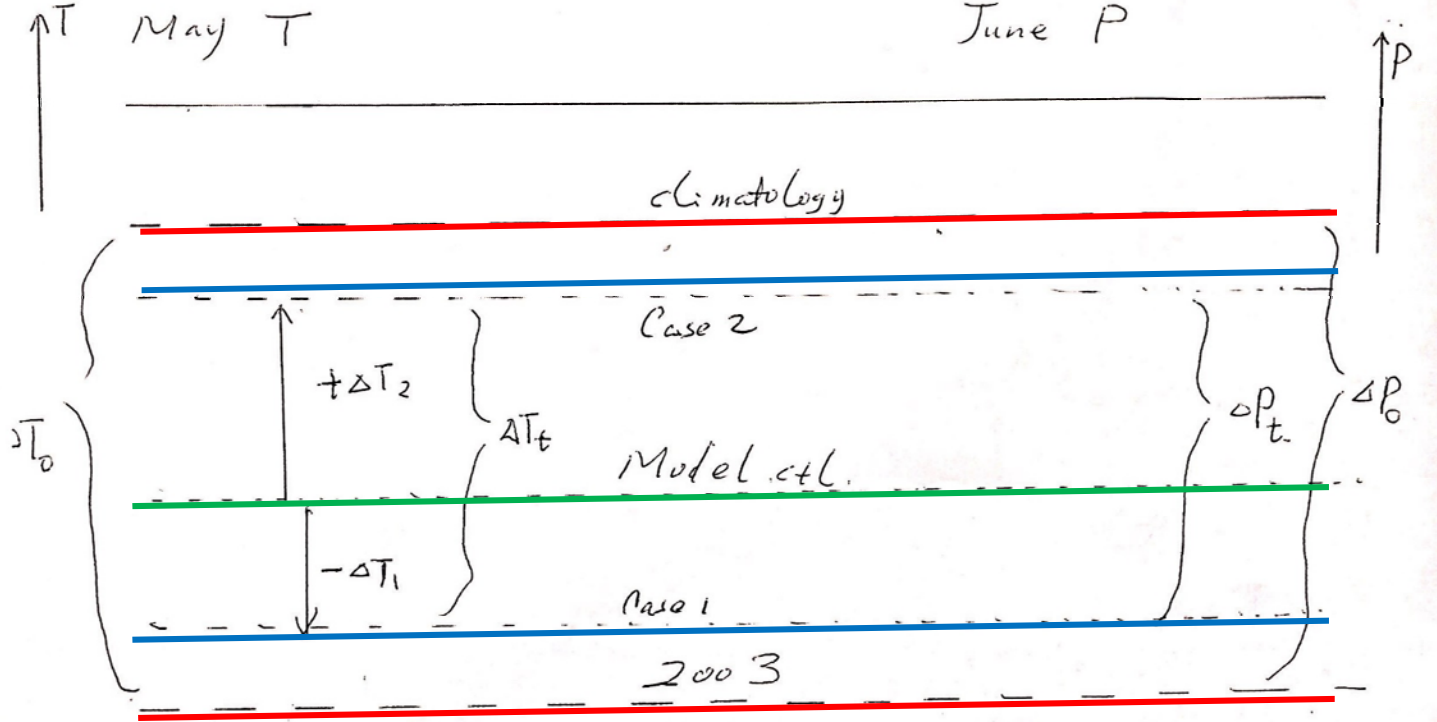 T May T June P P
climatology
Case 2
+ΔT₂
ΔTₜ ΔPₜ ΔP₀
ΔT₀
Model ctl.
-ΔT₁
Case 1
2003